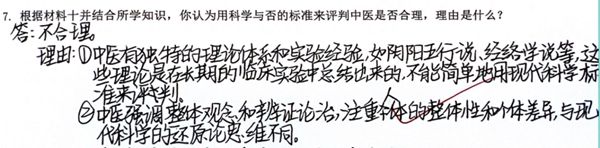 7. 根据材料十并结合所学知识，你认为用科学与否的标准来评判中医是否合理，理由是什么？
答：不合理。
理由：①中医有独特的理论体系和实验经验，如阴阳五行说、经络学说等，这
些理论是在长期的临床实验中总结出来的，不能简单地用现代科学标
准来评判。
②中医强调整体观念和辨证论治，注重人体的整体性和个体差异，与现
代科学的还原论思维不同。